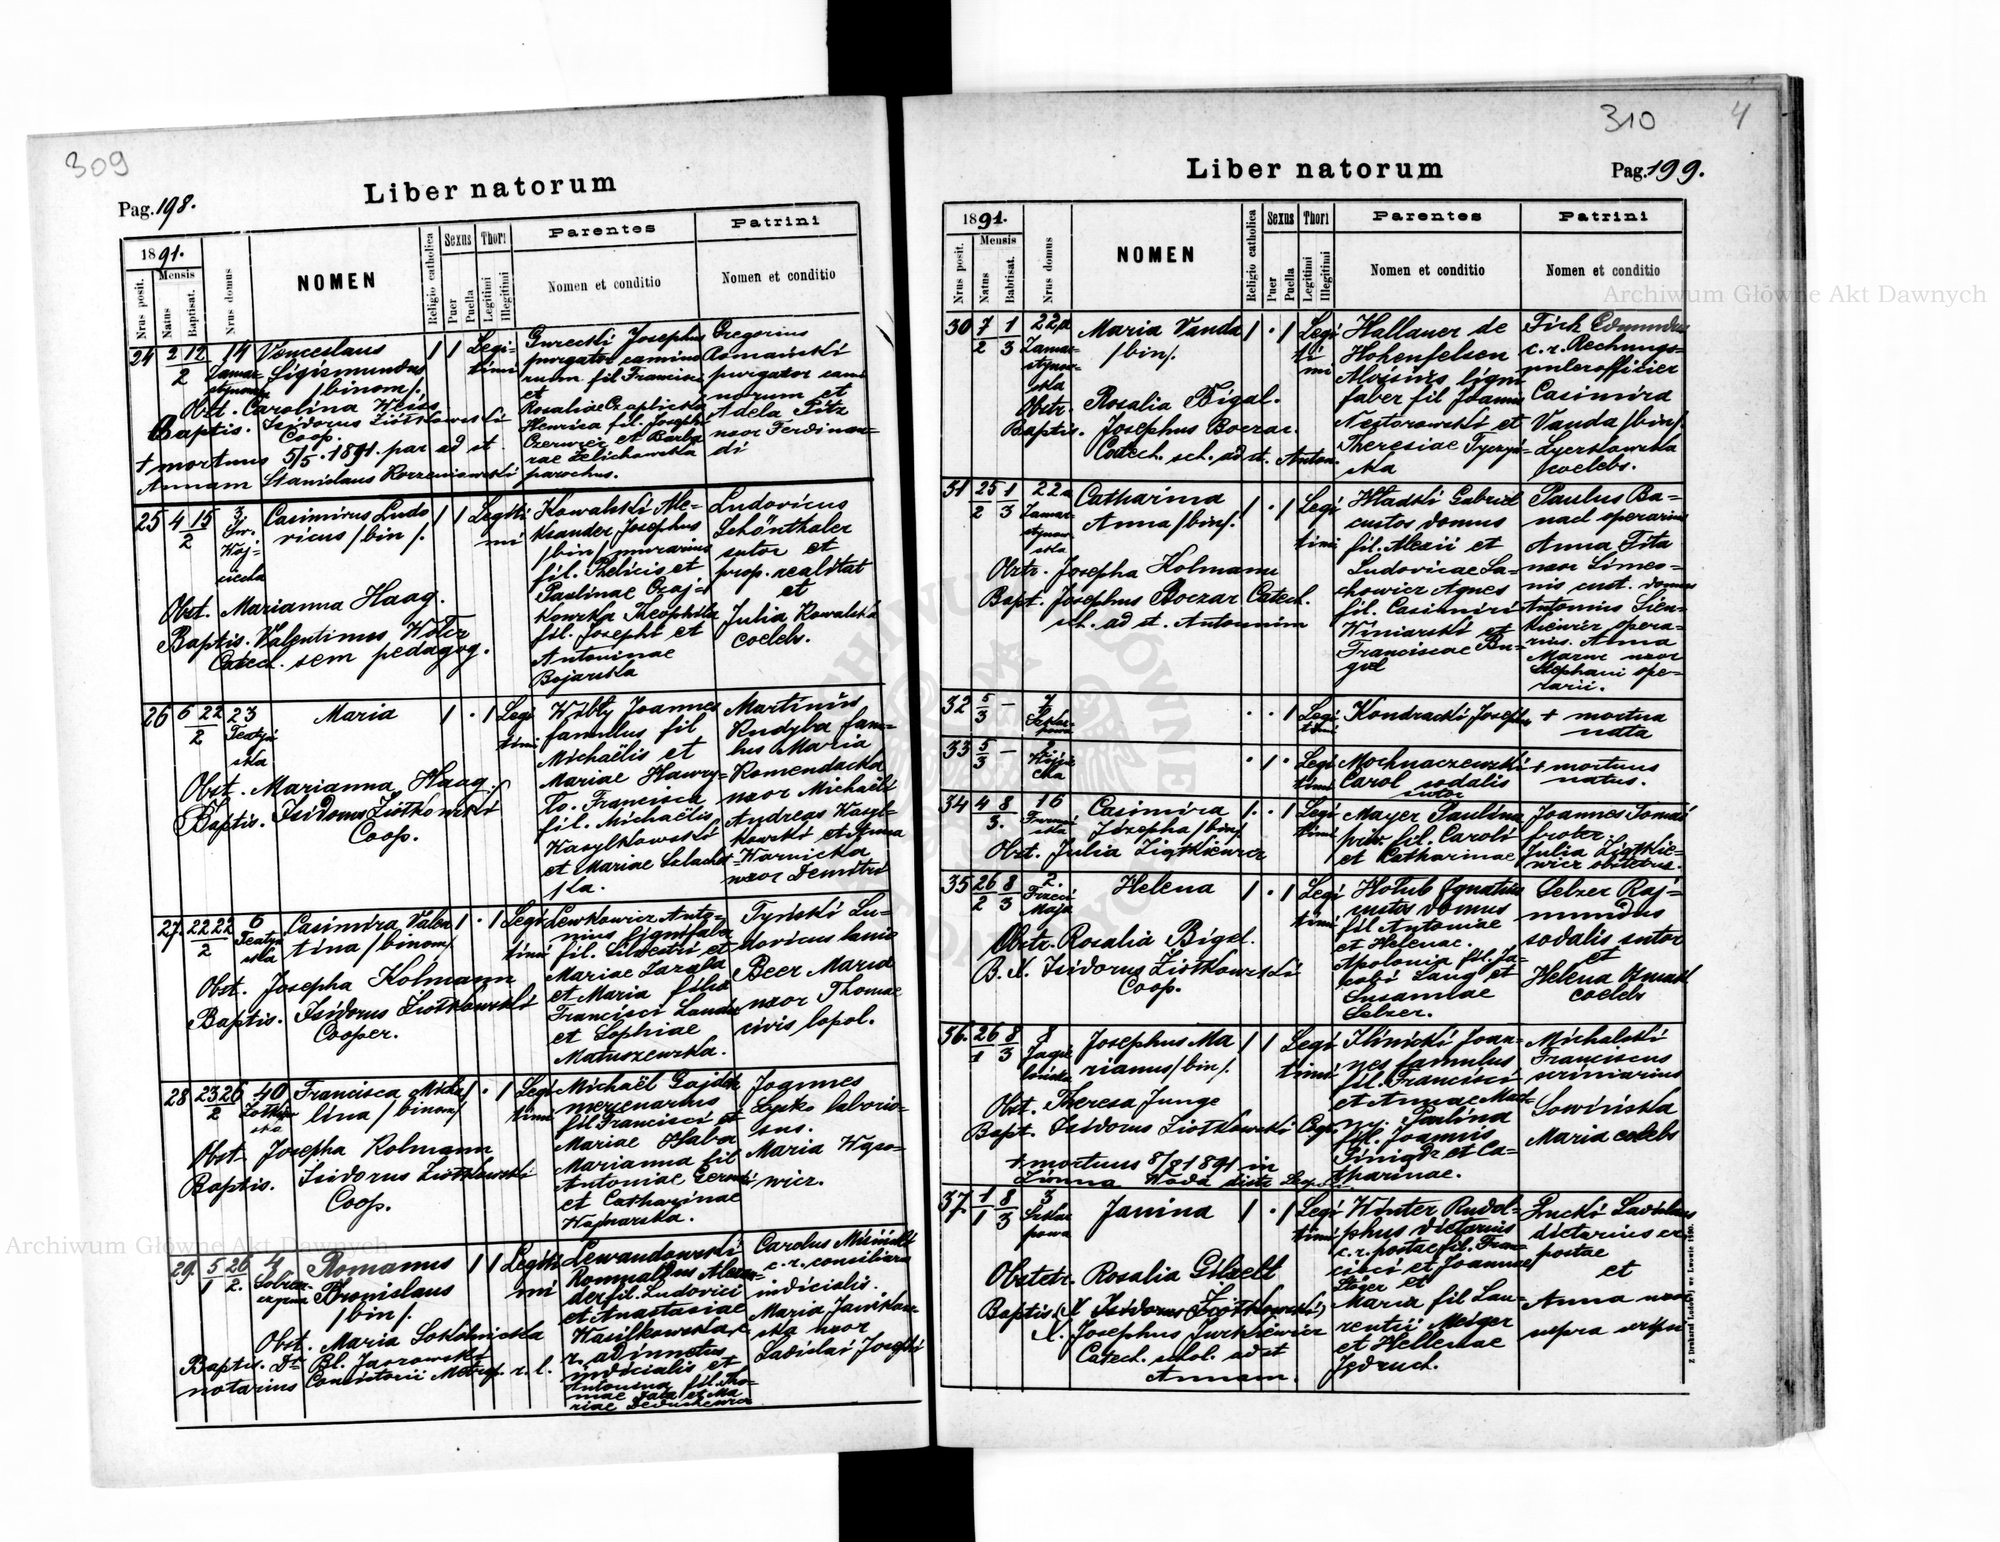 309
Liber natorum
Pag. 198.
1891.
Nrus posit.
Mensis
Natus
Baptisat.
Nrus domus
NOMEN
Religio catholica
Sexus
Puer
Puella
Thori
Legitimi
Illegitimi
Parentes
Nomen et conditio
Patrini
Nomen et conditio
24 2 12/2 14
Venceslaus
Sigismundus
/binom/.
Obst. Carolina Weiss
Baptis. Isidorus Ziółkowski
Coop.
+ mortuus 5/5. 1891. par ad st
Annam Stanislaus Korzeniowski parochus.
Legi-
timi
Gurecki Josephus
purgator camino
rum fil Francisci
et
Rosaliae Czaplicka
Henrica fil. Josephi
Czerwiec et Barba
rae Zelichowska
Gregorius
Romański
purgator cami
norum et
Adela Pitz
uxor Ferdinan-
di
25 4 15/2 3
Casimirus Ludo
vicus /bin/.
Obst. Marianna Haag.
Baptis. Valentinus Woler
Catech. sem pedagog.
Legiti
mi
Kowalski Ale-
ksander Josephus
/bin/ murarius
fil. Felicis et
Paulinae Czaj-
kowska Theophila
fil. Josephi et
Antoninae
Bojarska
Ludovicus
Schönthaler
sutor et
prop. realitat
et
Julia Kowalska
coelebs.
26 6 22/2 23
Teatyń
ska
Maria
Obst. Marianna Haag.
Baptis. Isidorus Ziółkowski
Coop.
Legi
timi
Wóbty Joannes
famulus fil
Michaëlis et
Mariae Hawry-
ko. Francisca
fil. Michaëlis
Wasylkowski
et Mariae Szlachet
ka.
Martinus
Rudyba famu-
lus Maria
Romendacka
uxor Michaëli
Andreas Wasyl-
kowski et Anna
Warnicka
uxor Demitri
27. 22 22/2 6
Teatyń
ska
Casimira Valen
tina /binom/
Obst. Josepha Kolmann
Baptis. Isidorus Ziółkowski
Cooper.
Legi
timi
Lewkowicz Anto-
nius lignifaber
fil. Silvestri et
Mariae Zazula
et Maria filia
Francisci Landa
et Sophiae
Matuszewska.
Tyński Lu-
dovicus lanio
Beer Maria
uxor Thomae
civis lopol.
28 23 26/2 40
Francisca Micha
lina /binom/
Obst. Josepha Kolmann
Baptis. Isidorus Ziółkowski
Coop.
Legi
timi
Michaël Gajdek
mercenarius
fil Francisci et
Mariae Haba
Marianna fil
Antoniae
et Catharinae
Wajnarska.
Joannes
laborio-
sus.
Maria Wąso-
wicz.
29. 5/1 26/2. 4
Romanus
Bronislaus
/bin/.
Obst. Maria Sokolnicka
Baptis. Dt Bl. Jaszowski
notarius Consistorii Metrop. r. l.
Legiti
mi
Lewandowski
Romualdus Alexan-
der fil. Ludovici
et Anastasiae
Wasilkowska, c.
r. adiunctus
iudicialis et
Antonina fil. Tho-
mae et Ma
riae
Carolus
c. r. consiliarius
indicialis.
Maria Janikow-
ska uxor
Ladislai Josephi
310 4
Liber natorum
Pag. 199.
1891.
Nrus posit.
Mensis
Natus
Babtisat.
Nrus domus
NOMEN
Religio catholica
Sexus
Puer
Puella
Thori
Legitimi
Illegitimi
Parentes
Nomen et conditio
Patrini
Nomen et conditio
30 7/2 1/3 22a
Zamar-
stynow-
ska
Maria Vanda
/bin/.
Obstr. Rosalia Bigal.
Baptis. Josephus Boczar.
Catech. sch. ad st. Anton.
Legi
ti
mi
Hallauer de
Hohenfelsen
Aloisius ligni
faber fil Joannis
Nestorowski et
Theresiae
ska
Fick Edmundus
c. r. Rechnungs-
unterofficier
Casimira
Vanda /bin/.
Lyczkowska
coelebs.
31 25/2 1/3 22a
Zamar-
stynow-
ska
Catharina
Anna /bin/.
Obstr. Josepha Kolmann
Bapt. Josephus Boczar Catech.
sch. ad st. Antonium
Legi
timi
Hladki Gabriel
custos domus
fil. Alexii et
Ludovicae La-
chowicz Agnes
fil. Casimiri
Winiarski et
Franciscae Bu-
giel
Paulus Ba-
nach operarius
Anna Pita
uxor Simeo-
nis cust. domus
Antonius Sien-
kiewicz opera-
rius. Anna
Mazur uxor
Stephani ope-
rarii.
32 5/3 — 7
Legi
timi
Kondracki Josephus
+ mortua
nata
33 5/3 —
Legi
timi
Mochnaczewski
Carol sodalis
sutor
+ mortuus
natus.
34 4 8/3. 16
Casimira
Józepha /bin/
Obst. Julia Ziętkiewicz
Legi
timi
Mayer Paulina
priv. fil. Caroli
et Catharinae
Joannes Tomasi
frater.
Julia Ziętkie-
wicz obstetrix.
35 26/2 8/3 2.
Trzeci
Maja
Helena
Obstr. Rosalia Bigel.
B. X. Isidorus Ziółkowski
Coop.
Legi
timi
Holub Ignatius
custos domus
fil Antoniae
et Helenae.
Apolonia fil. Ja-
cobi Lang et
Susannae
Selzer.
Selzer Raj-
mundus
sodalis sutor
et
Helena
coelebs
36. 26/1 8/3 8
Jagiel
lońska
Josephus Ma
rianus /bin/.
Obst. Theresa Junge
Bapt. Isidorus Ziółkowski
+ mortuus 8/8 1891 in
Zimna Woda
Legi
timi
Ilinicki Joan-
nes famulus
fil. Francisci
et Annae
Paulina
fil. Joannis
et Ca-
tharinae.
Michalski
Franciscus
scriniarius
Sowińska
Maria coelebs
37. 1/1 8/3 3
Szkar
powa
Janina
Obstetr. Rosalia Gibzelt
Baptis. X. Isidorus Ziółkowski
X. Josephus Jurkiewicz
Catech. schol. ad st
Annam.
Legi
timi
Winter Rudol-
phus dietarius
c. r. postae fil. Fran-
cisci et Joannae
Stöger et
Maria fil Lau-
rentii Meiger
et Hellenae
Jędruch.
Łucki Ladislaus
dietarius c. r.
postae
et
Anna uxor
supra script
Z Drukarni Ludowej we Lwowie 1890.
Archiwum Główne Akt Dawnych
Archiwum Główne Akt Dawnych